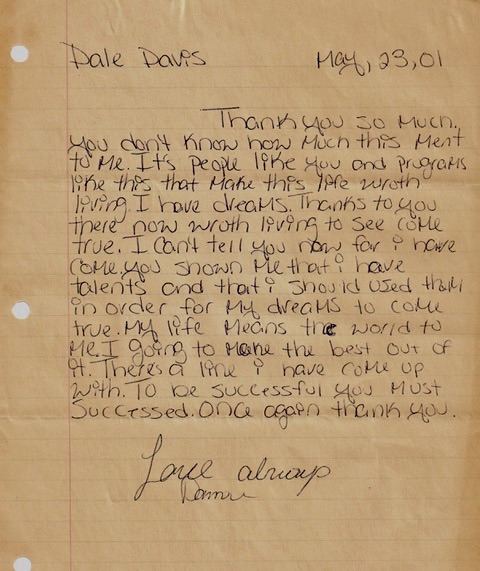 Dale Davis May, 23, 01
Thank you so much.
You don't know how much this ment
to me. It's people like you and programs
like this that make this life wroth
living. I have dreams. Thanks to you
there now wroth living to see come
true. I can't tell you how far i have
come. you shown me that i have
talents and that i should used them
in order for my dreams to come
true. My life means the world to
me. I going to make the best out of
it. There's a line i have come up
with. To be successful you must
successed. Once again thank you.
Love always